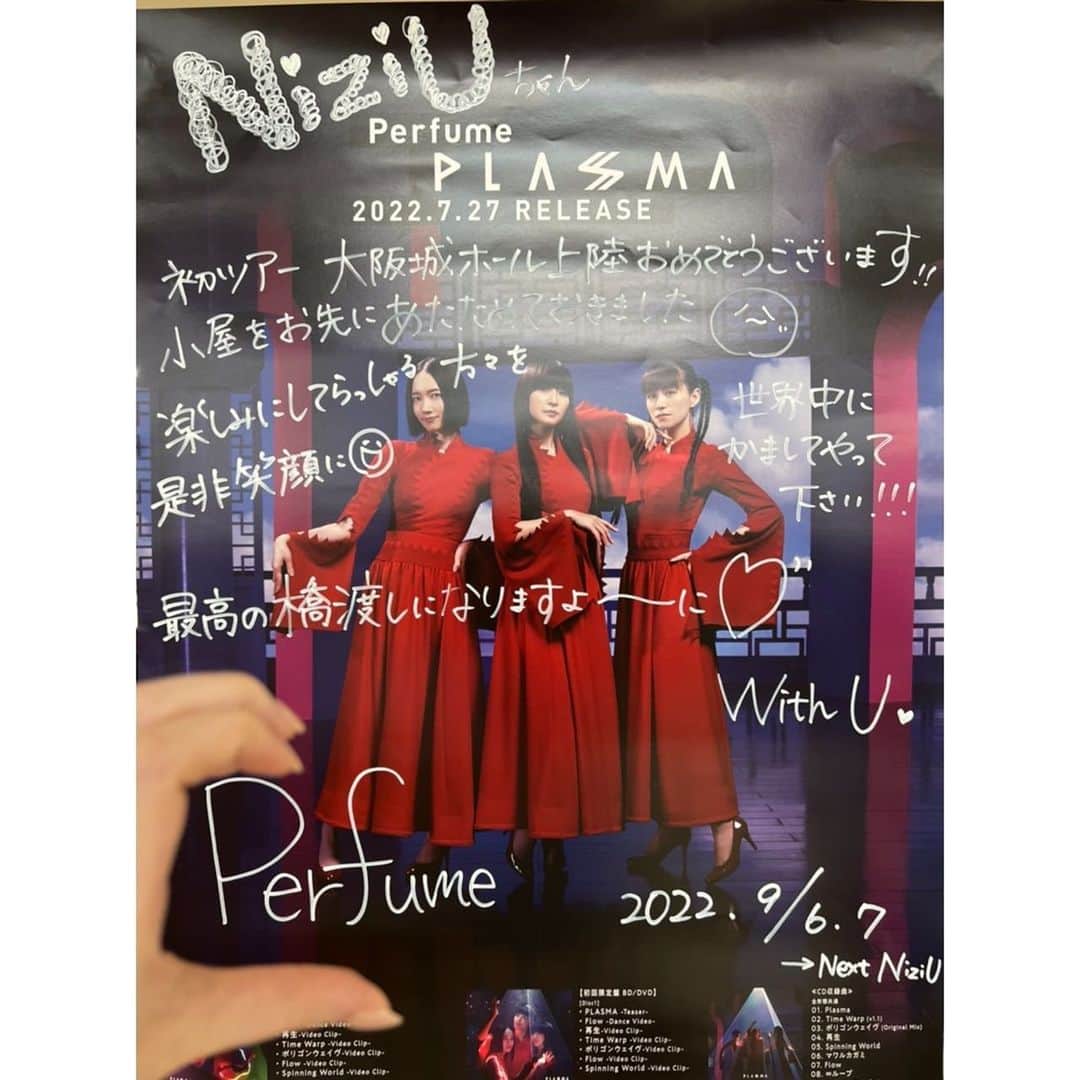 NiziUちゃん
Perfume
PLASMA
2022.7.27 RELEASE
初ツアー 大阪城ホール上陸おめでとうございます!!
小屋をお先にあたためておきました
楽しみにしてらっしゃる方々を
是非笑顔に
世界中に
かましてやって
下さい!!!
最高の橋渡しになりますよ〜に
With U
Perfume
2022. 9/6.7
→ Next NiziU
再生 -Video Clip-
・Time Warp -Video Clip-
・ポリゴンウェイヴ -Video Clip-
・Flow -Video Clip-
・Spinning World -Video Clip-
【初回限定盤 BD/DVD】
[Disc1]
・PLASMA -Teaser-
・Flow -Dance Video-
・再生 -Video Clip-
・Time Warp -Video Clip-
・ポリゴンウェイヴ -Video Clip-
・Flow -Video Clip-
・Spinning World -Video Clip-
PLASMA
≪CD収録曲≫
01. Plasma
02. Time Warp (v1.1)
03. ポリゴンウェイヴ (Original Mix)
04. 再生
05. Spinning World
06. マワルカガミ
07. Flow
08. ∞ループ